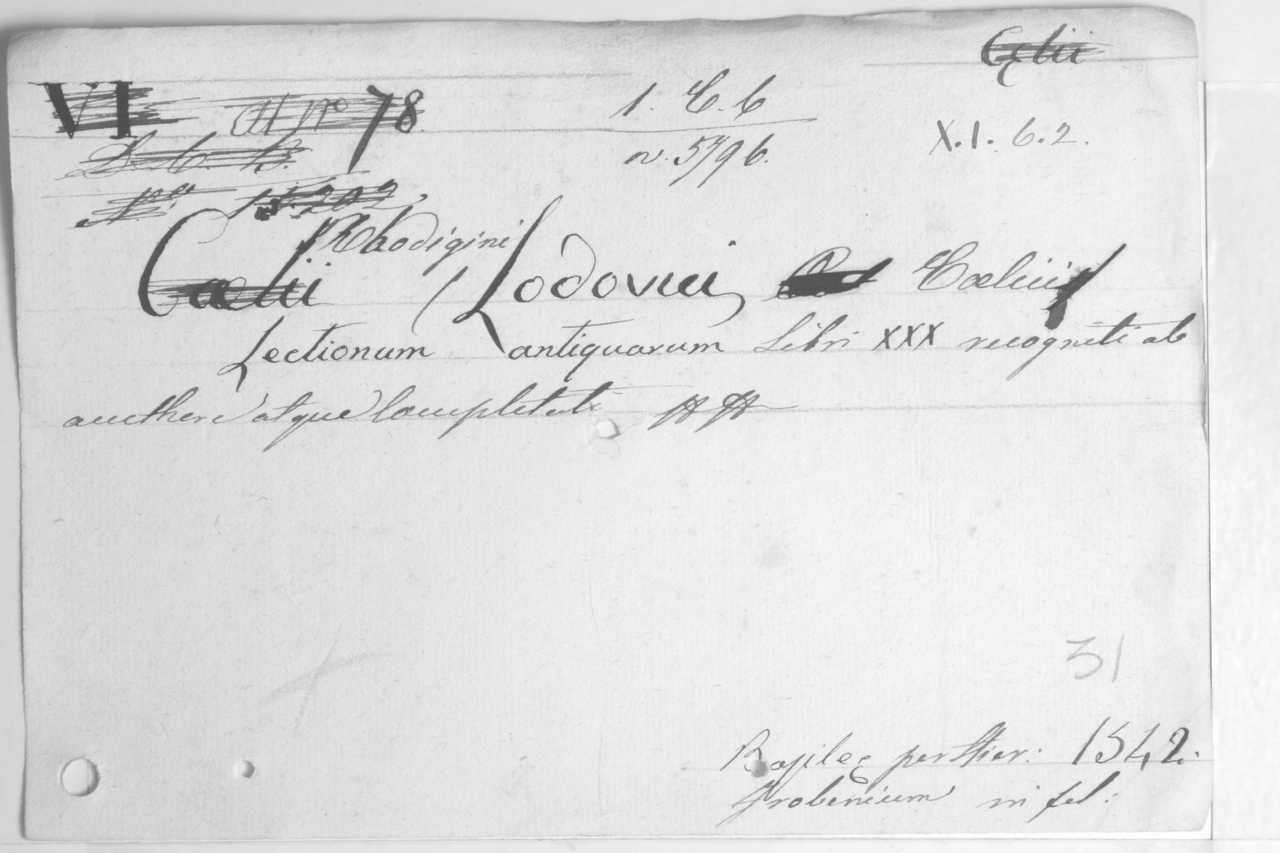 Cęlii
VI 78 1. C. 6
n. 5796. X.1.6.2.
Nº 1
Rhodigini
Cælii Lodovici Cælii
Lectionum antiquarum Libri XXX recogniti ab
authore atque locupletati
31
Basileę per Hier: 1542.
Frobenium in fol: